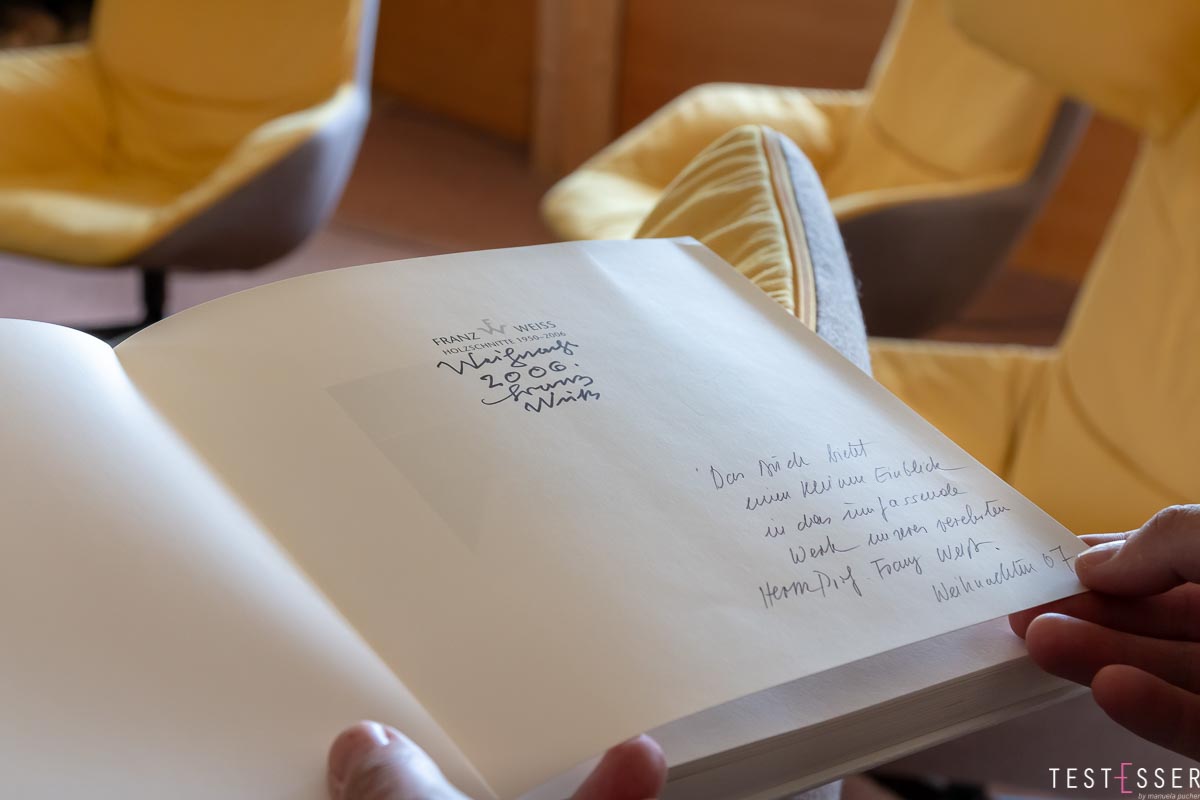 FRANZ FW WEISS
HOLZSCHNITTE 1950–2006
Weihnacht
2006.
Franz
Weiss
Das Buch bietet
einen kleinen Einblick
in das umfassende
Werk unseres verehrten
Herrn Prof. Franz Weiß.
Weihnachten 07
TESTESSER
by manuela pucher